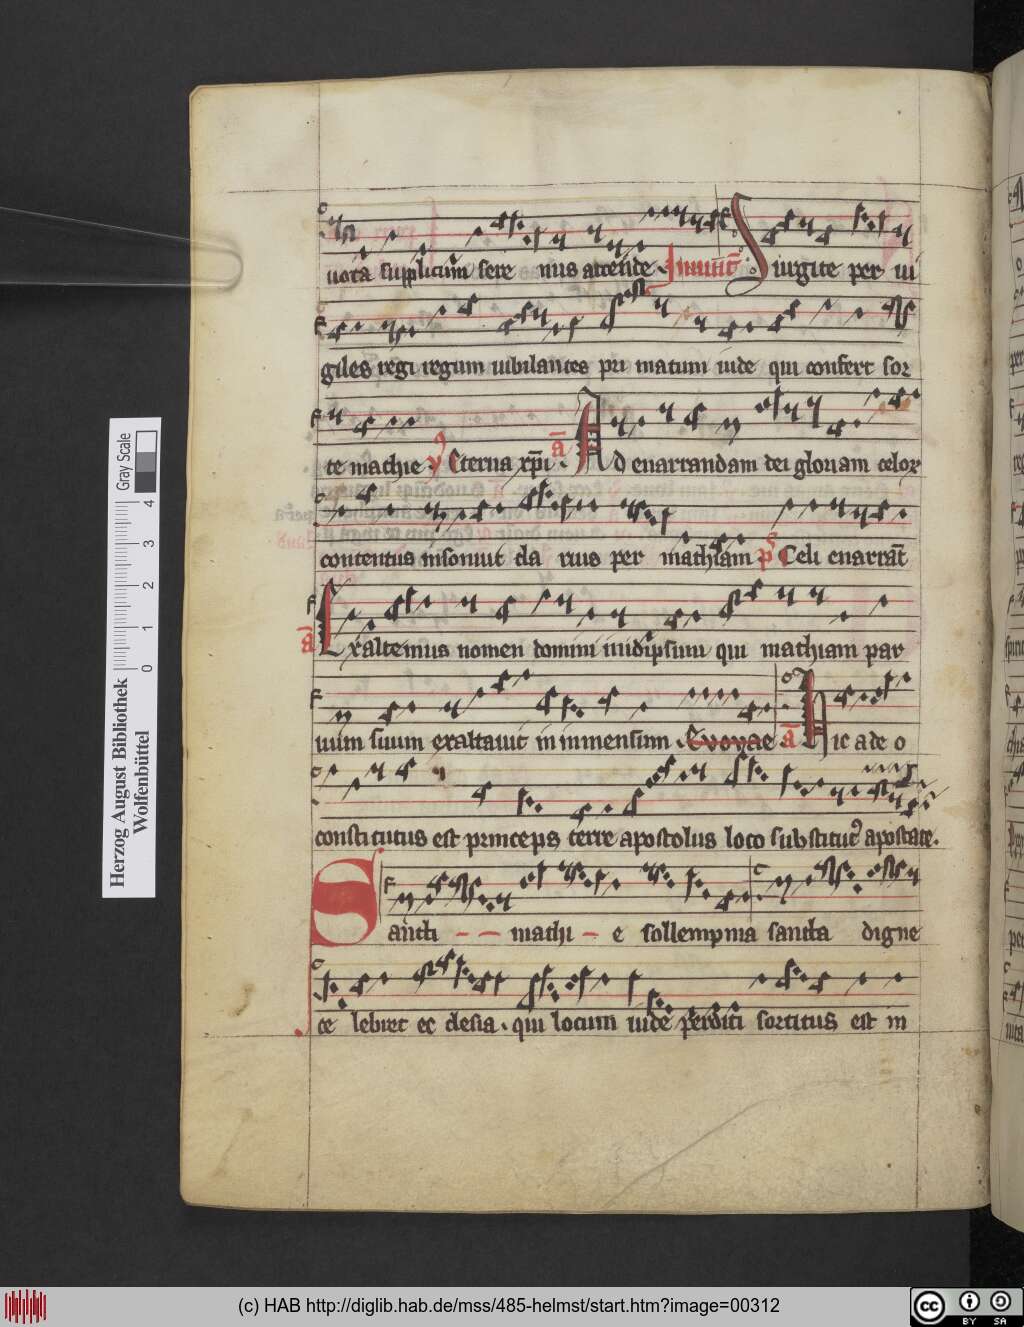 uota supplicum sere nus attende . Inuit̄ Surgite per ui
giles regi regum iubilantes pri matum iude qui confert sor
te mathie ỹ Eterna xp̄i . ā Ad enarrandam dei gloriam celor
contentus insonuit cla rius per mathiam ps Celi enarrāt
ā Exaltemus nomen domini in idipsum qui mathiam par
uum suum exaltauit in inmensum . Euouae ā Hic a deo
constitutus est princeps terre apostolus loco substitutꝰ apostate.
Sancti mathi e sollempnia sancta digne
ce lebret ec clesia . qui locum iude perditi sortitus est in
Herzog August Bibliothek
Wolfenbüttel
Gray Scale
0 1 2 3 4
(c) HAB http://diglib.hab.de/mss/485-helmst/start.htm?image=00312
cc BY SA